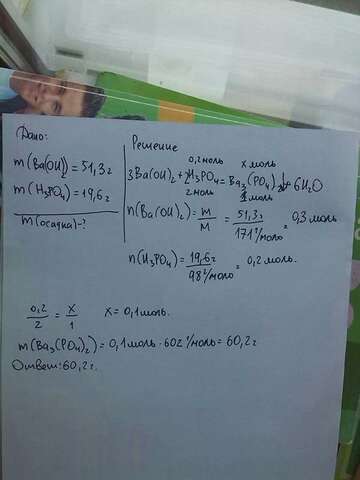 Дано:
m(Ba(OH)2) = 51,3 г
m(H3PO4) = 19,6 г
m(осадка) - ?
Решение
0,2 моль x моль
3Ba(OH)2 + 2H3PO4 = Ba3(PO4)2↓ + 6H2O
2 моль 1 моль
n(Ba(OH)2) = m/M = 51,3 г/171 г/моль = 0,3 моль
n(H3PO4) = 19,6 г/98 г/моль = 0,2 моль.
0,2/2 = x/1 x = 0,1 моль.
m(Ba3(PO4)2) = 0,1 моль · 602 г/моль = 60,2 г
Ответ: 60,2 г.